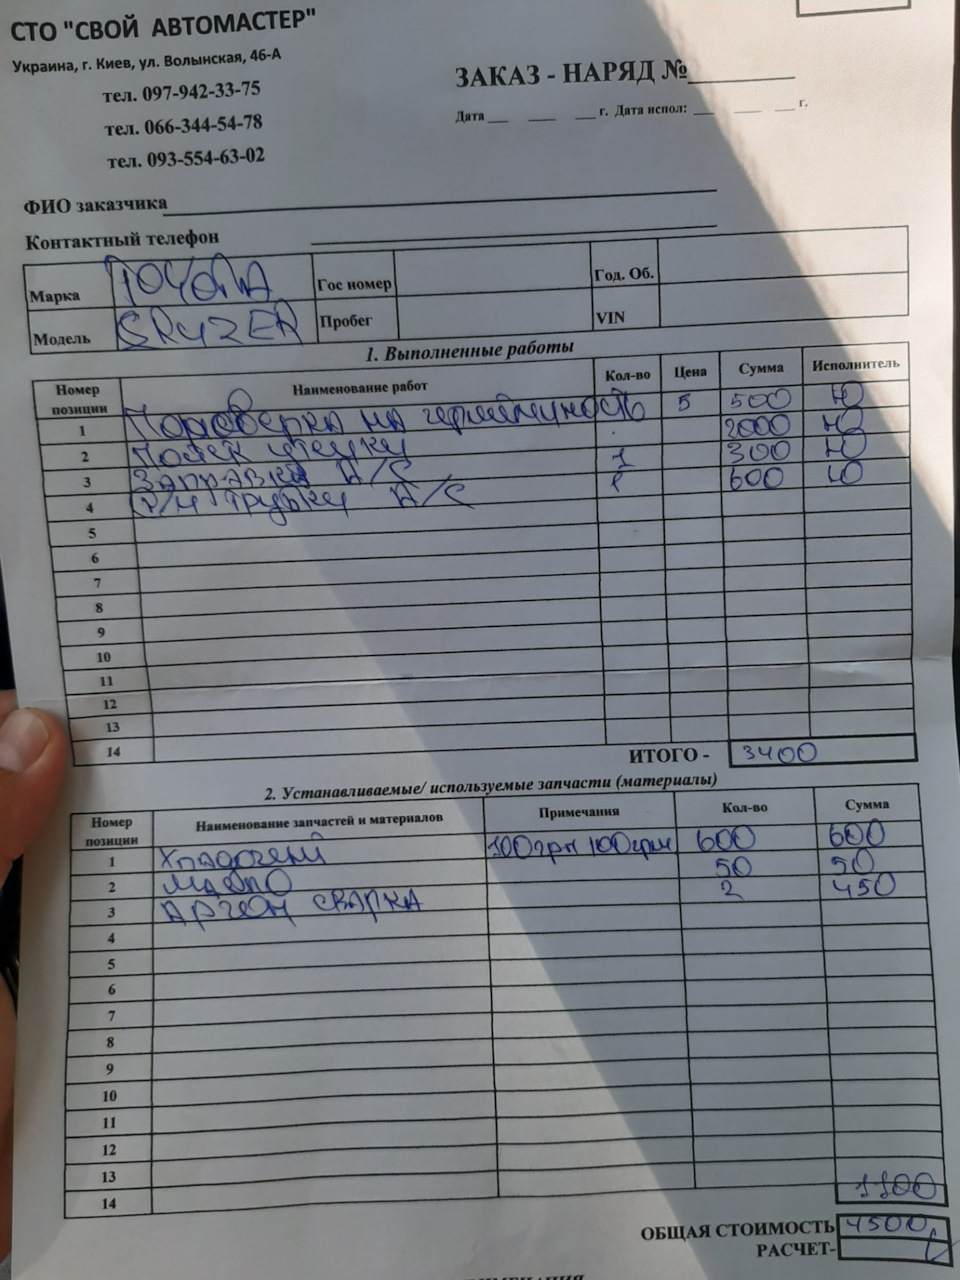 СТО "СВОЙ АВТОМАСТЕР"
Украина, г. Киев, ул. Волынская, 46-А
тел. 097-942-33-75
тел. 066-344-54-78
тел. 093-554-63-02
ЗАКАЗ - НАРЯД №
Дата г. Дата испол: г.
ФИО заказчика
Контактный телефон
Марка ТОЧОТА Гос номер Год. Об.
Модель CRYZER Пробег VIN
1. Выполненные работы
Номер позиции Наименование работ Кол-во Цена Сумма Исполнитель
Проверка на герметичность 5 500 Ю
1 Поиск утечки 2000 Ю
2 Заправка А/С 1 300 Ю
3 Р/Ч трубки А/С 1 600 Ю
4
5
6
7
8
9
10
11
12
13
14
ИТОГО - 3400
2. Устанавливаемые/ используемые запчасти (материалы)
Номер позиции Наименование запчастей и материалов Примечания Кол-во Сумма
1 Хладогент 100грн 100грм 600 600
2 Масло 50 50
3 Аргон сварка 2 450
4
5
6
7
8
9
10
11
12
13
14 1100
ОБЩАЯ СТОИМОСТЬ 4500
РАСЧЕТ-